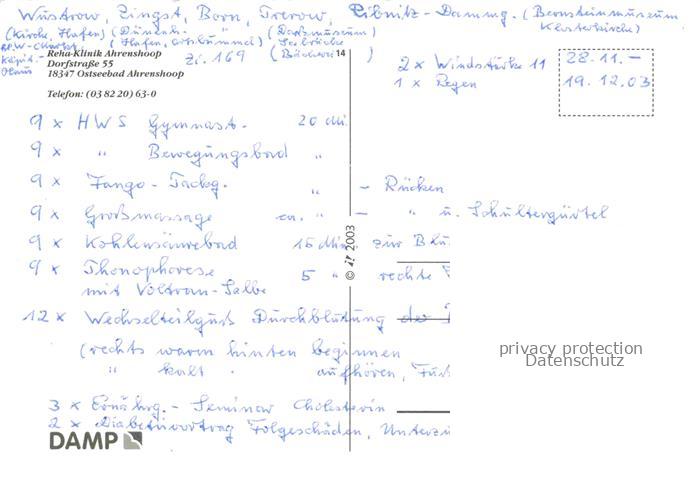 Wustrow, Zingst, Born, Prerow, Ribnitz-Dammg. (Bernsteinmuseum
(Kirche, Hafen) (Dünen- " (Darßmuseum) Klosterkirche)
(Hafen, Ortsbummel) Seebrücke
Haus Zi. 169 (Bäckerei)
Reha-Klinik Ahrenshoop
Dorfstraße 55
18347 Ostseebad Ahrenshoop
Telefon: (03 82 20) 63-0
14
2 x Windstärke 11
1 x Regen
28.11.-
19.12.03
9 x HWS Gymnast. 20 Mi.
9 x " Bewegungsbad "
9 x Fango-Packg. " - Rücken
9 x Großmassage ca. " - " u. Schultergürtel
9 x Kohlensäurebad 15 Min. zur Blu
9 x Phonophorese 5 " rechte
mit Voltaren-Salbe
12 x Wechselteilguß Durchblutung der
(rechts warm hinten beginnen
" kalt " aufhören,
3 x Ernährg.-Seminar Cholesterin
2 x Diabetesvortrag Folgeschäden, Unterzu
© 2003
DAMP
privacy protection
Datenschutz